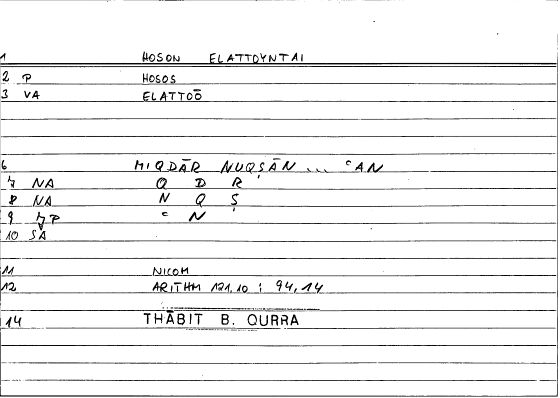 1 HOSON ELATTOYNTAI
2 P HOSOS
3 VA ELATTOŌ
6 MIQDĀR NUQṢĀN ... ʿAN
7 NA Q D R
8 NA N Q Ṣ
9 ʿ N
10 SA
11 NICOM
12 ARITHM 121,10 ; 94,14
14 THĀBIT B. QURRA